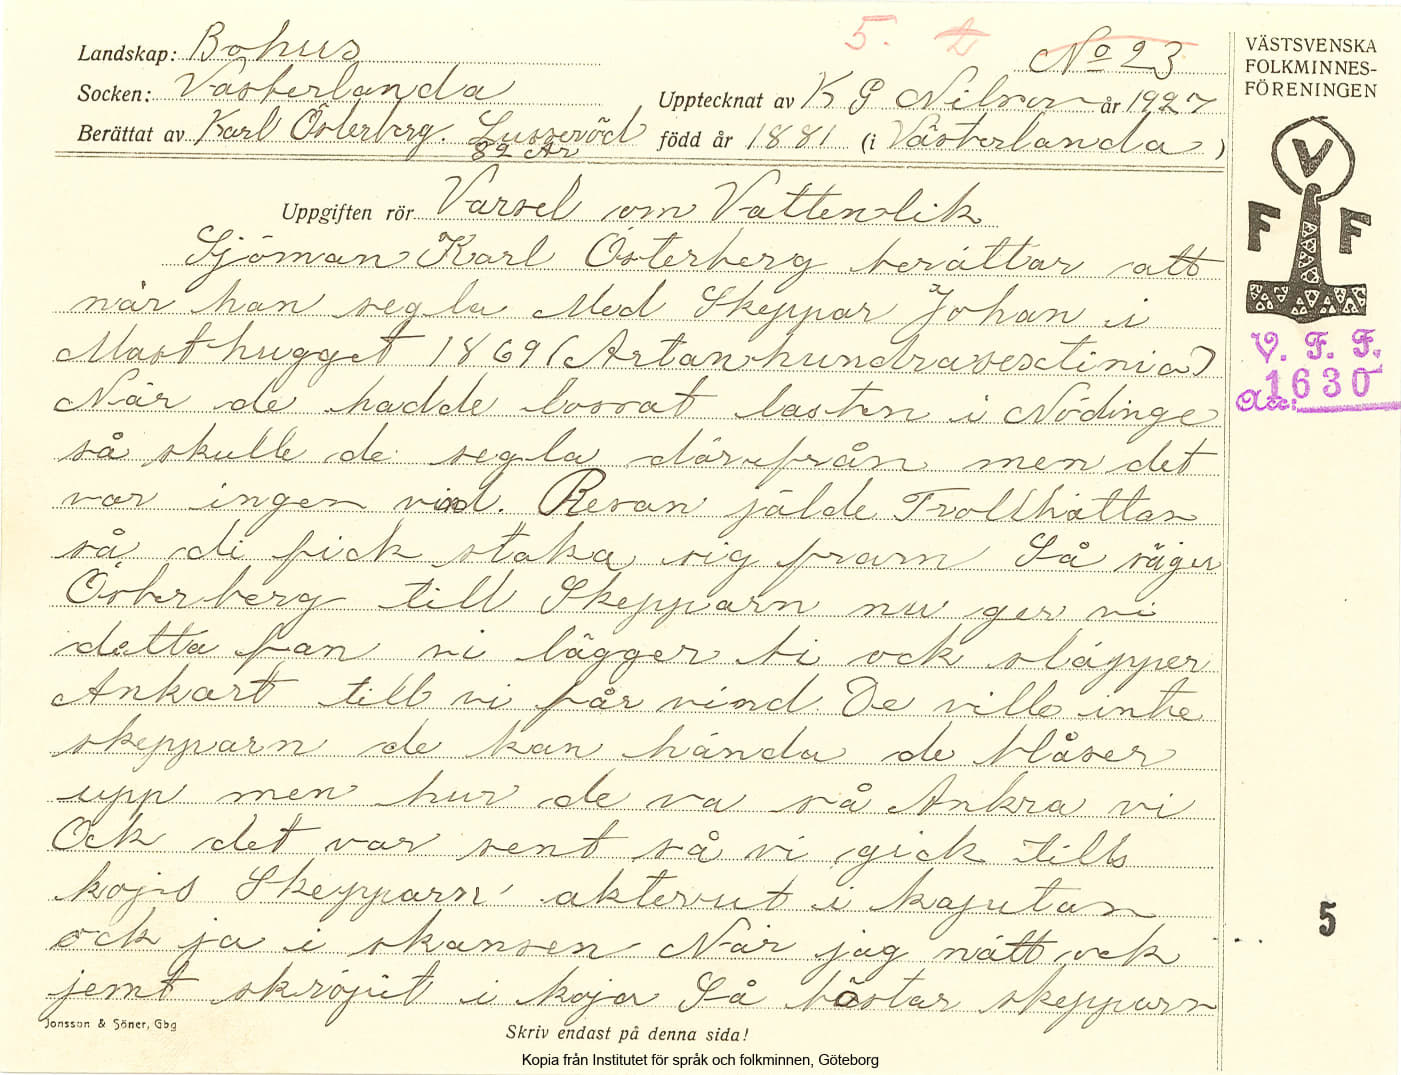 5.
No 23
Landskap: Bohus
Socken: Västerlanda
Upptecknat av K G Nilson år 1927
Berättat av Karl Österberg. Lussevöd
82 År
född år 1881 (i Västerlanda)
VÄSTSVENSKA
FOLKMINNES-
FÖRENINGEN
V
F F
V. F. F.
Acc: 1630
Uppgiften rör Varsel om Vattenlik
Sjöman Karl Österberg berättar att
när han segla Med Skeppar Johan i
Masthugget 1869 (Artanhundrasextinia)
När de hadde lossat lasten i Nödinge
så skulle de segla därifrån men det
var ingen vind. Resan jälde Trollhättan
så di fick staka sig fram Så säger
Österberg till Skepparn nu ger vi
detta fan vi lägger bi ock släpper
Ankart till vi får vind De ville inte
skepparn de kan hända de blåser
upp men hur de va så Ankra vi
Ock det var sent så vi gick tills
kojs Skepparn akterut i kajutan
ock ja i skansen När jag nått ock
jemt skröpit i koja Så böstar skepparn
5
Jonsson & Söner, Gbg
Skriv endast på denna sida!
Kopia från Institutet för språk och folkminnen, Göteborg